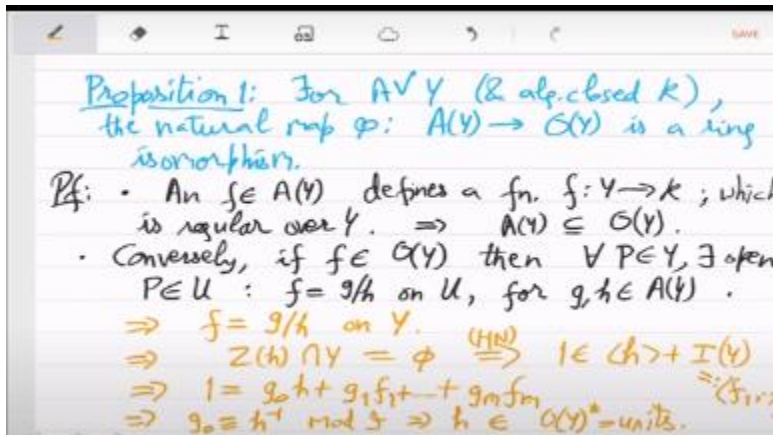 SAVE
Proposition 1: For AV Y (& alg. closed k),
the natural map φ: A(Y) → O(Y) is a ring
isomorphism.
Pf: · An f ∈ A(Y) defines a fn. f: Y → k ; which
is regular over Y. ⇒ A(Y) ⊆ O(Y).
· Conversely, if f ∈ O(Y) then ∀ P ∈ Y, ∃ open
P ∈ U : f = g/h on U, for g, h ∈ A(Y) .
⇒ f = g/h on Y.
⇒ Z(h) ∩ Y = φ (HN) ⇒ 1 ∈ <h> + I(Y)
⇒ 1 = g₀h + g₁f₁ + ... + gₘfₘ =: <f₁,
⇒ g₀ ≡ h⁻¹ mod I ⇒ h ∈ O(Y)* = units.